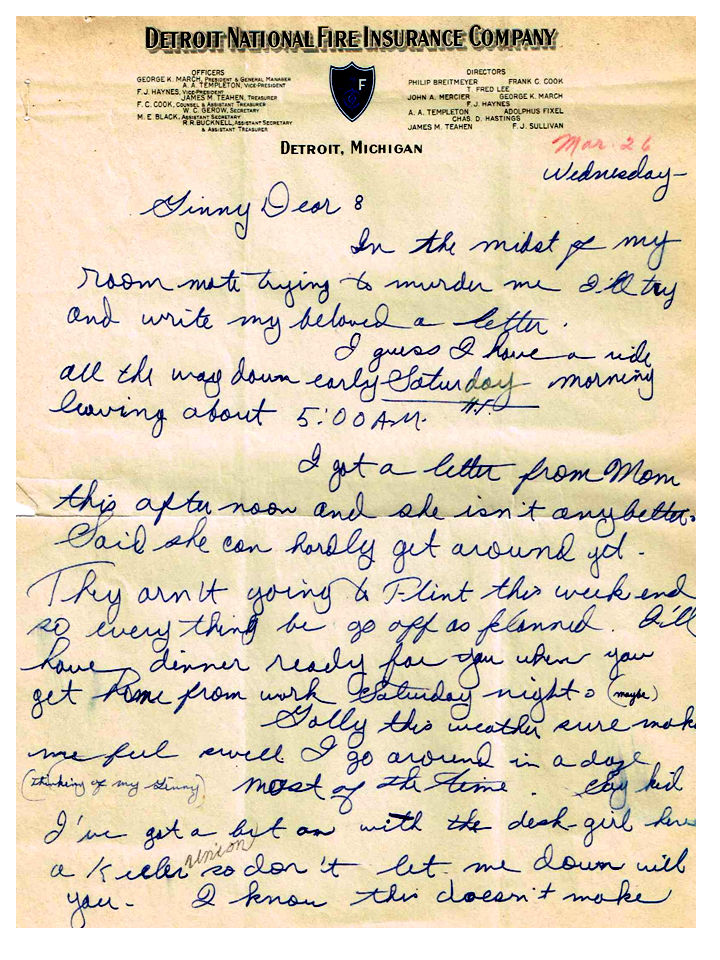 DETROIT NATIONAL FIRE INSURANCE COMPANY
OFFICERS
GEORGE K. MARCH, PRESIDENT & GENERAL MANAGER
A. A. TEMPLETON, VICE-PRESIDENT
F. J. HAYNES, VICE-PRESIDENT
JAMES M. TEAHEN, TREASURER
F. C. COOK, COUNSEL & ASSISTANT TREASURER
W. C. GEROW, SECRETARY
M. E. BLACK, ASSISTANT SECRETARY
R. R. BUCKNELL, ASSISTANT SECRETARY
& ASSISTANT TREASURER
F
DIRECTORS
PHILIP BREITMEYER FRANK C. COOK
T. FRED LEE
JOHN A. MERCIER GEORGE K. MARCH
F. J. HAYNES
A. A. TEMPLETON ADOLPHUS FIXEL
CHAS. D. HASTINGS
JAMES M. TEAHEN F. J. SULLIVAN
DETROIT, MICHIGAN
Mar. 26
Wednesday-
Ginny Dear :
In the midst of my
room mate trying to murder me I'll try
and write my beloved a letter.
I guess I have a ride
all the way down early Saturday morning
leaving about 5:00 A.M.
I got a letter from Mom
this afternoon and she isn't any better.
Said she can hardly get around yet.
They arn't going to Flint this week end
so every thing be go off as planned. I'll
have dinner ready for you when you
get home from work Saturday night. (maybe)
Golly this weather sure make
me feel swell I go around in a daze
(thinking of my Ginny) most of the time. Say kid
I've got a bet on with the desk-girl here
a Keeler union so don't let me down will
you. I know this doesn't make